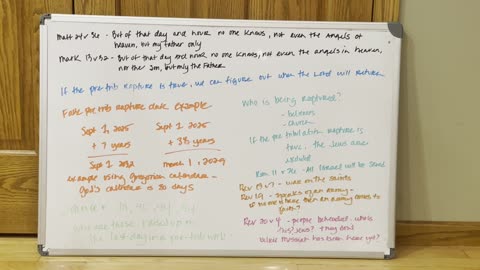 Matt 24 v 36 - But of that day and hour no one knows, not even the angels of
heaven, but my father only
Mark 13 v 32 - But of that day and hour no one knows, not even the angels in heaven,
nor the Son, but only the Father
If the pre trib rapture is true, we can figure out when the Lord will return
Fake pre trib rapture date example
Sept 1, 2025
+ 7 years
Sept 1 2032
Sept 1 2025
+ 3.5 years
March 1, 2029
example using Gregorian calendar -
God's calendar is 30 days
Who is being raptured?
- believers
- church
If the pre tribulation rapture is
true, the Jews are
Rom 11 v 26 - All Israel will be saved
Rev 13 v 7 - war on the saints
Rev 19 - speaks of an army -
if no one is here then an army comes to
Rev 20 v 4 - people beheaded, who is
this? Jews? they don't
believe Messiah has been here yet?
who are these
the last day in a pre-trib world